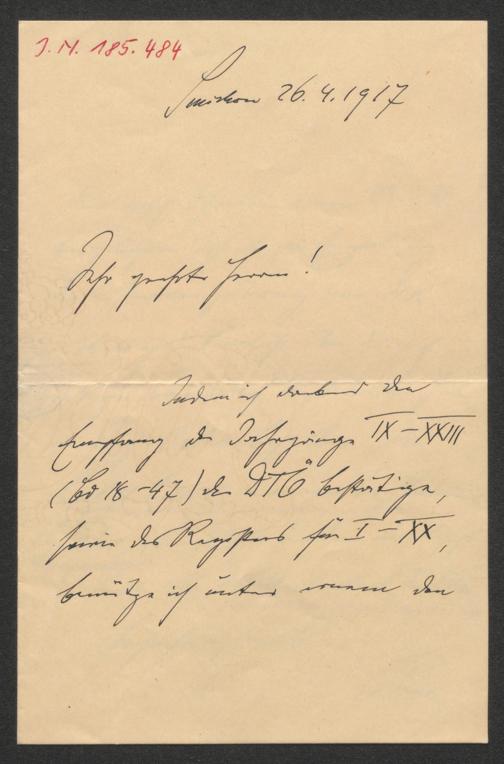 J. N. 185.484
Smichow 26.4.1917
Sehr geehrte Herren!
Indem ich dankend den
Empfang der Jahrgänge IX–XXIII
(Bd 18–47) der DTÖ bestätige,
sowie des Registers für I–XX,
benütze ich unter einem den